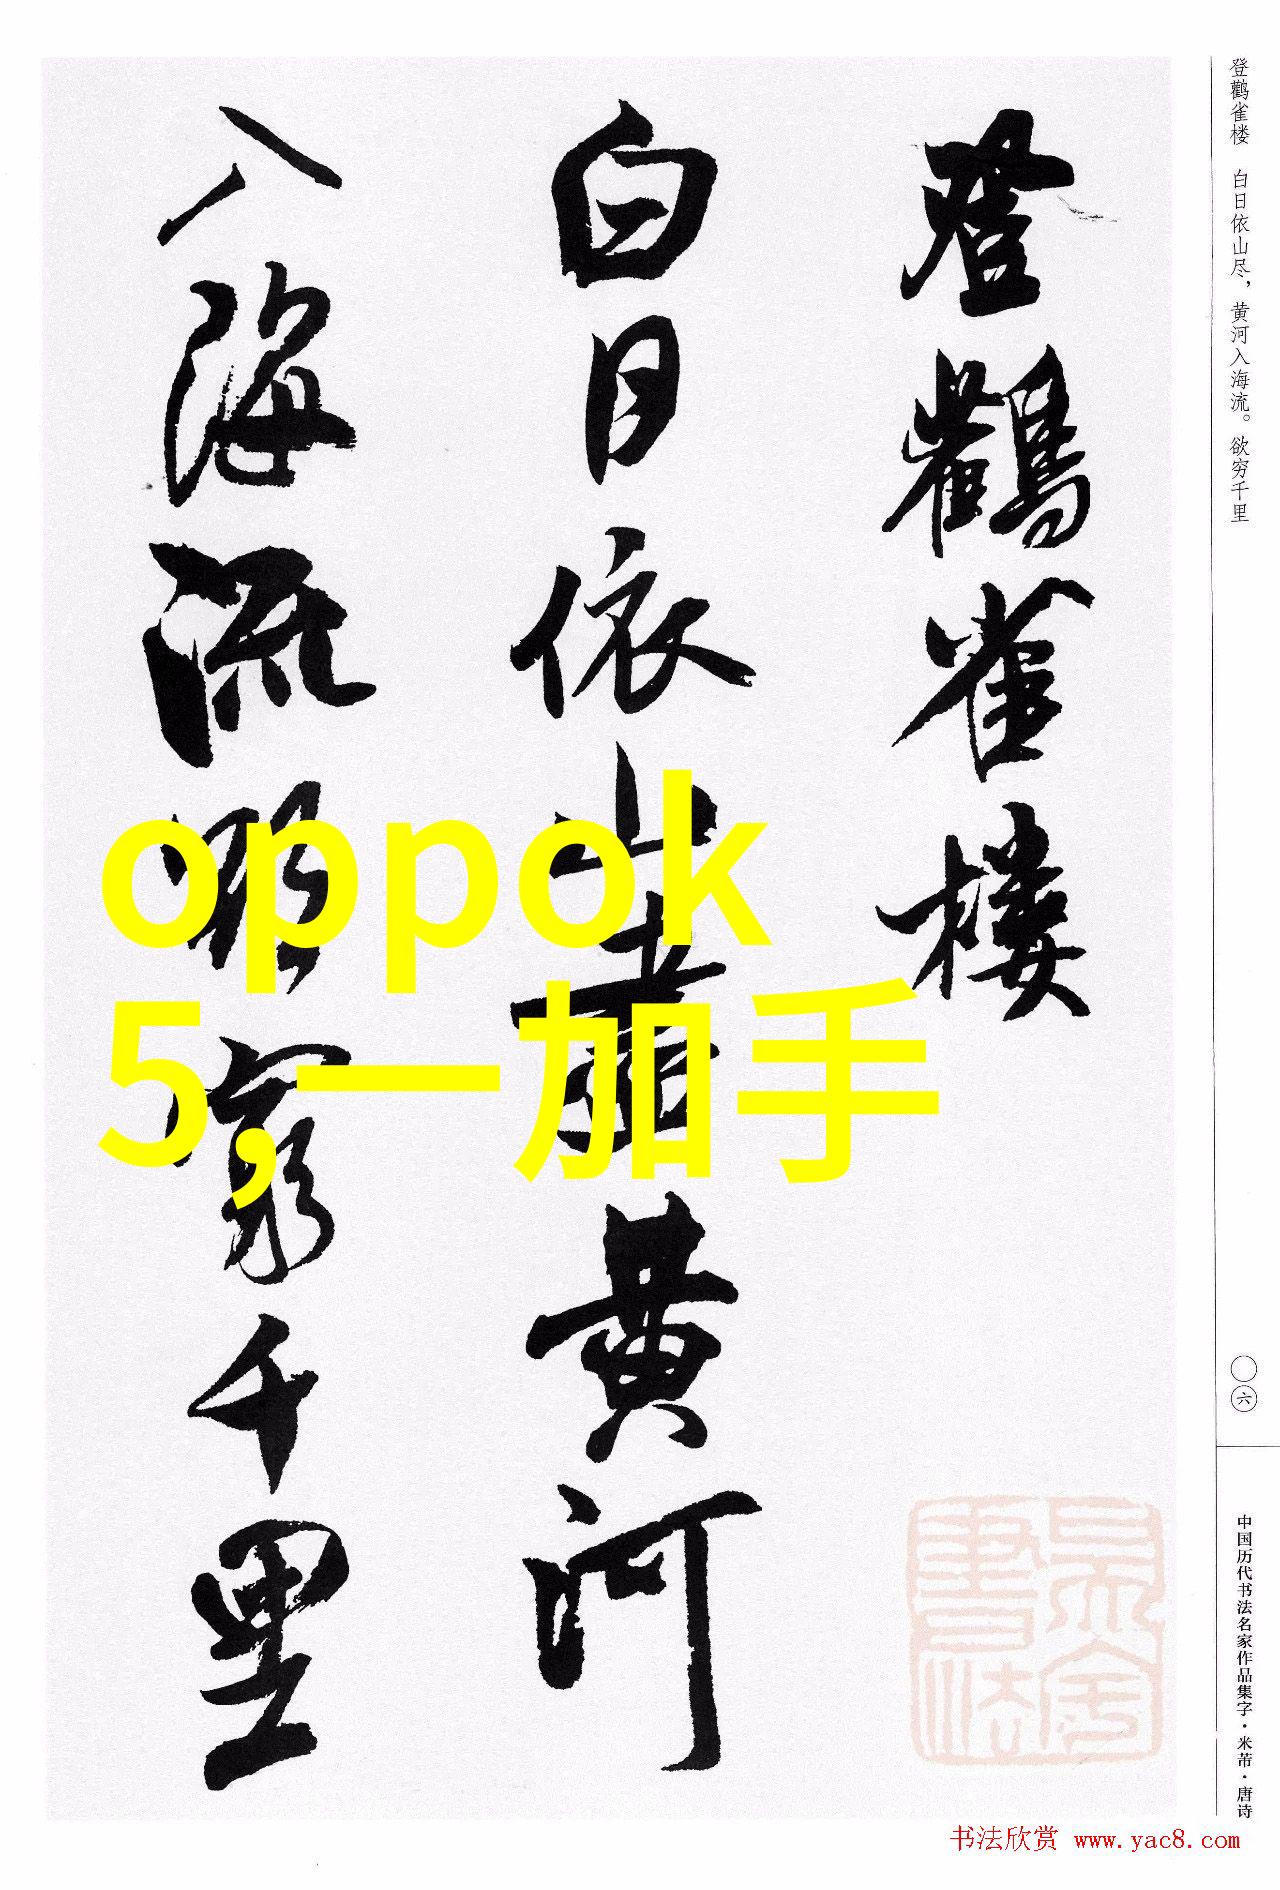 登鸛雀楼
白日依山盡黄河
入海流欲窮千里
oppok
5,一加手
登鹳雀楼 白日依山尽，黄河入海流。欲穷千里
〇六
中国历代书法名家作品集字·米芾·唐诗
书法欣赏 www.yac8.com